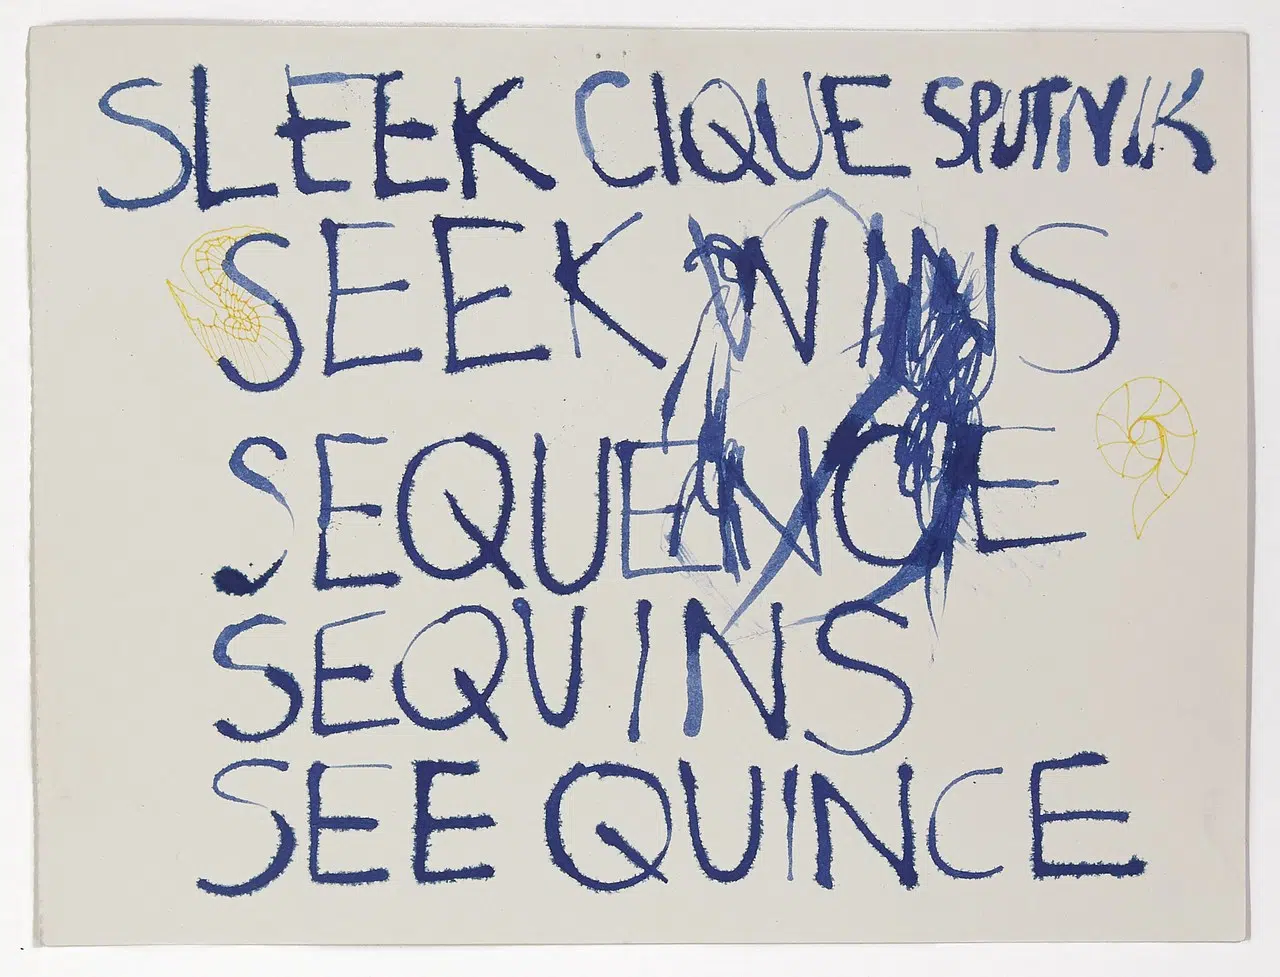 SLEEK CIQUE SPUTNIK
SEEK
SEQUENCE
SEQUINS
SEE QUINCE